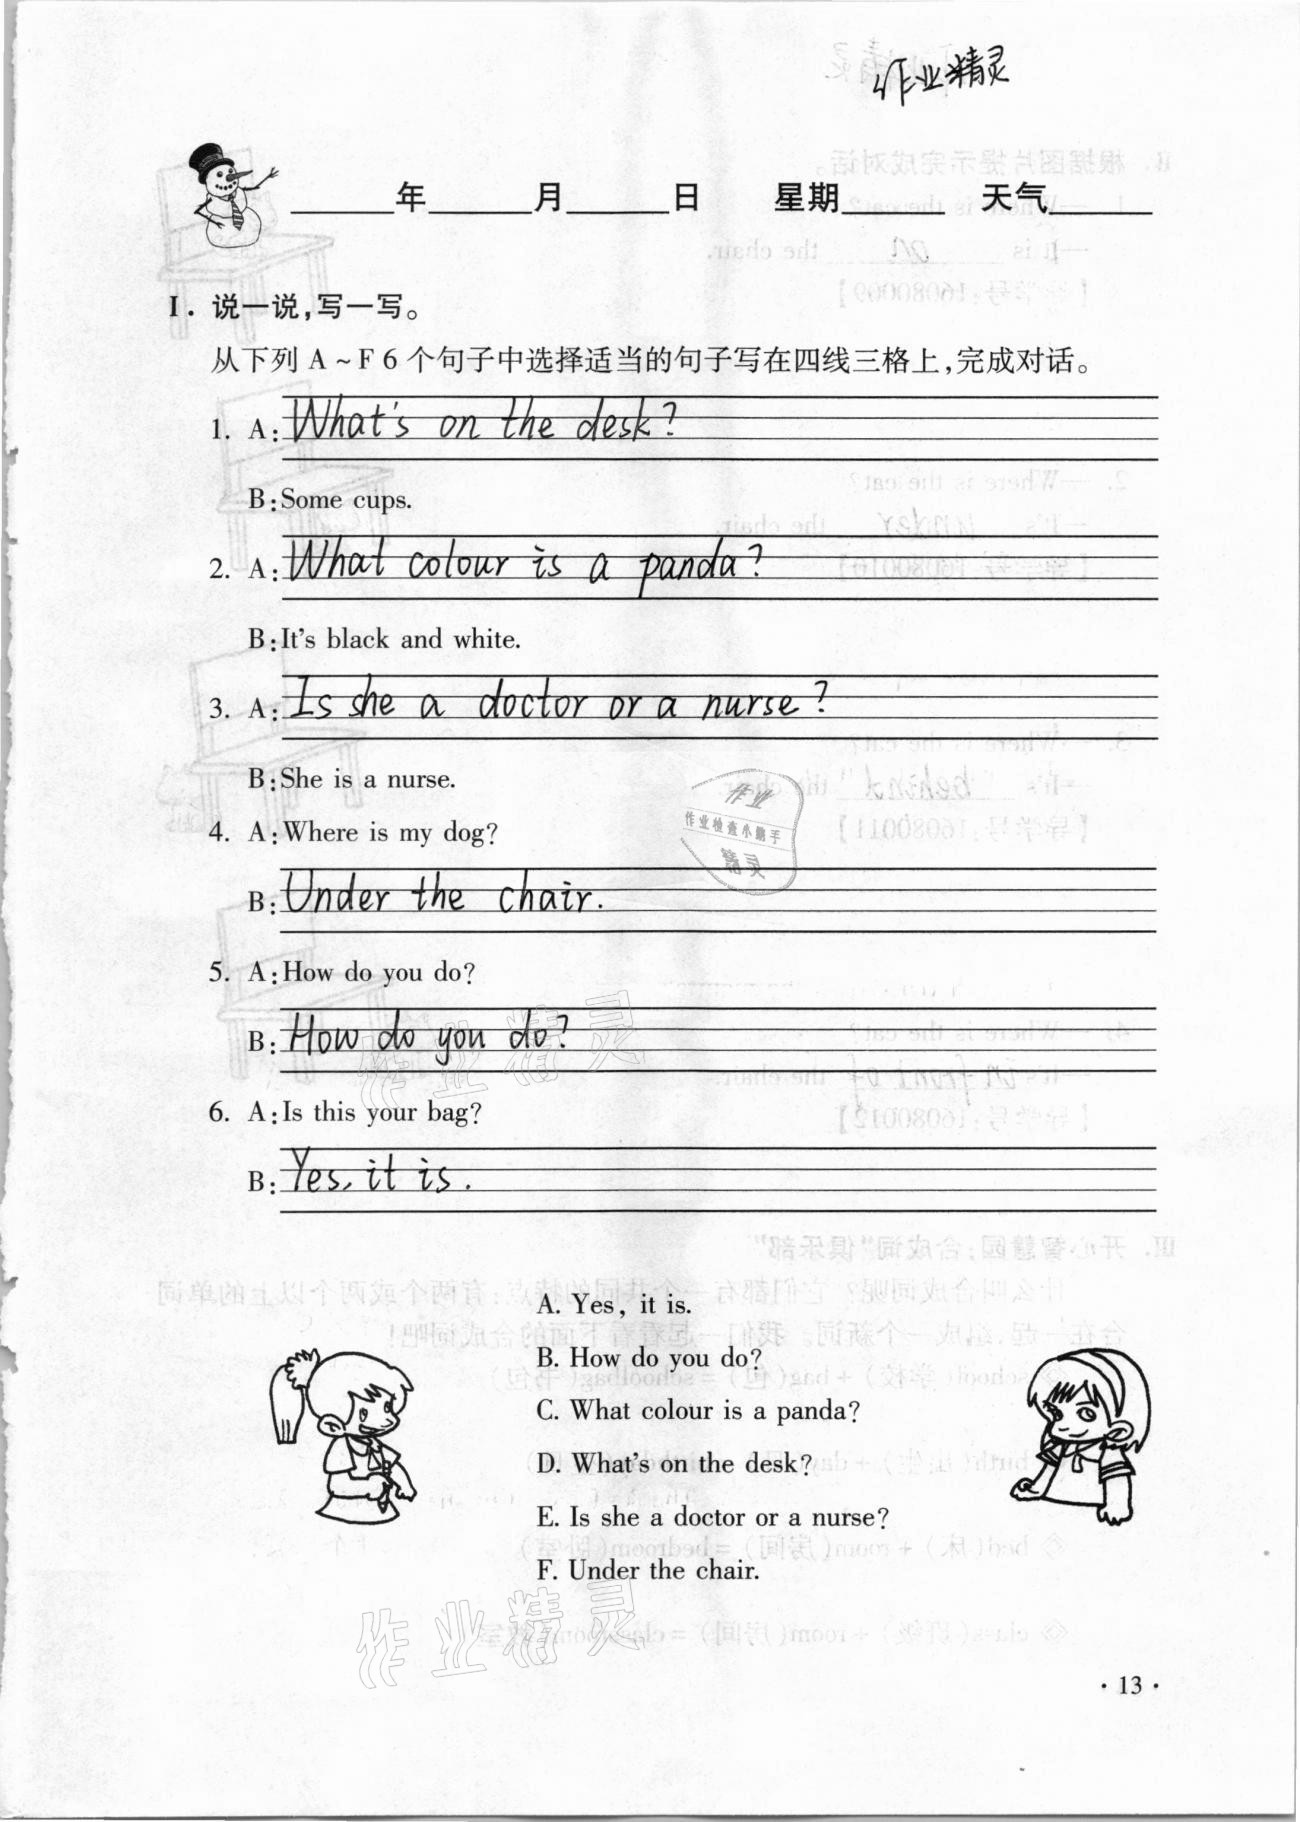 作业精灵
年 月 日 星期 天气
I. 说一说,写一写。
从下列 A ~ F 6 个句子中选择适当的句子写在四线三格上,完成对话。
1. A: What's on the desk?
B: Some cups.
2. A: What colour is a panda?
B: It's black and white.
3. A: Is she a doctor or a nurse?
B: She is a nurse.
4. A: Where is my dog?
B: Under the chair.
5. A: How do you do?
B: How do you do?
6. A: Is this your bag?
B: Yes, it is.
A. Yes, it is.
B. How do you do?
C. What colour is a panda?
D. What's on the desk?
E. Is she a doctor or a nurse?
F. Under the chair.
作业
作业检查小助手
精灵
作业精灵
作业精灵
· 13 ·